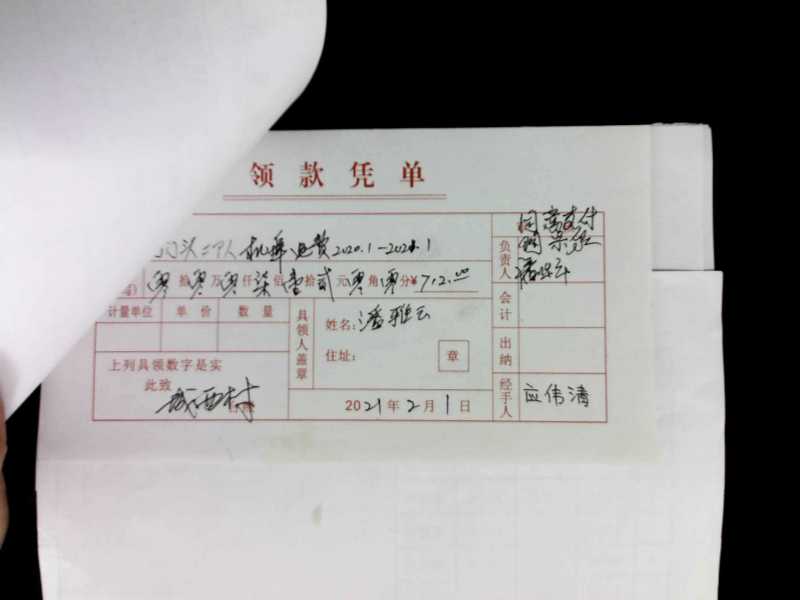 领款凭单
门头二个人 机 费2020.1-2021.1
零拾零万零仟柒佰壹拾贰元零角零分¥712.00
计量单位 单价 数量
上列具领数字是实
此致
城西村
具领人盖章
姓名:潘雅云
住址: 章
2021年2月1日
负责人 同意支付
会计
出纳
经手人 应伟清